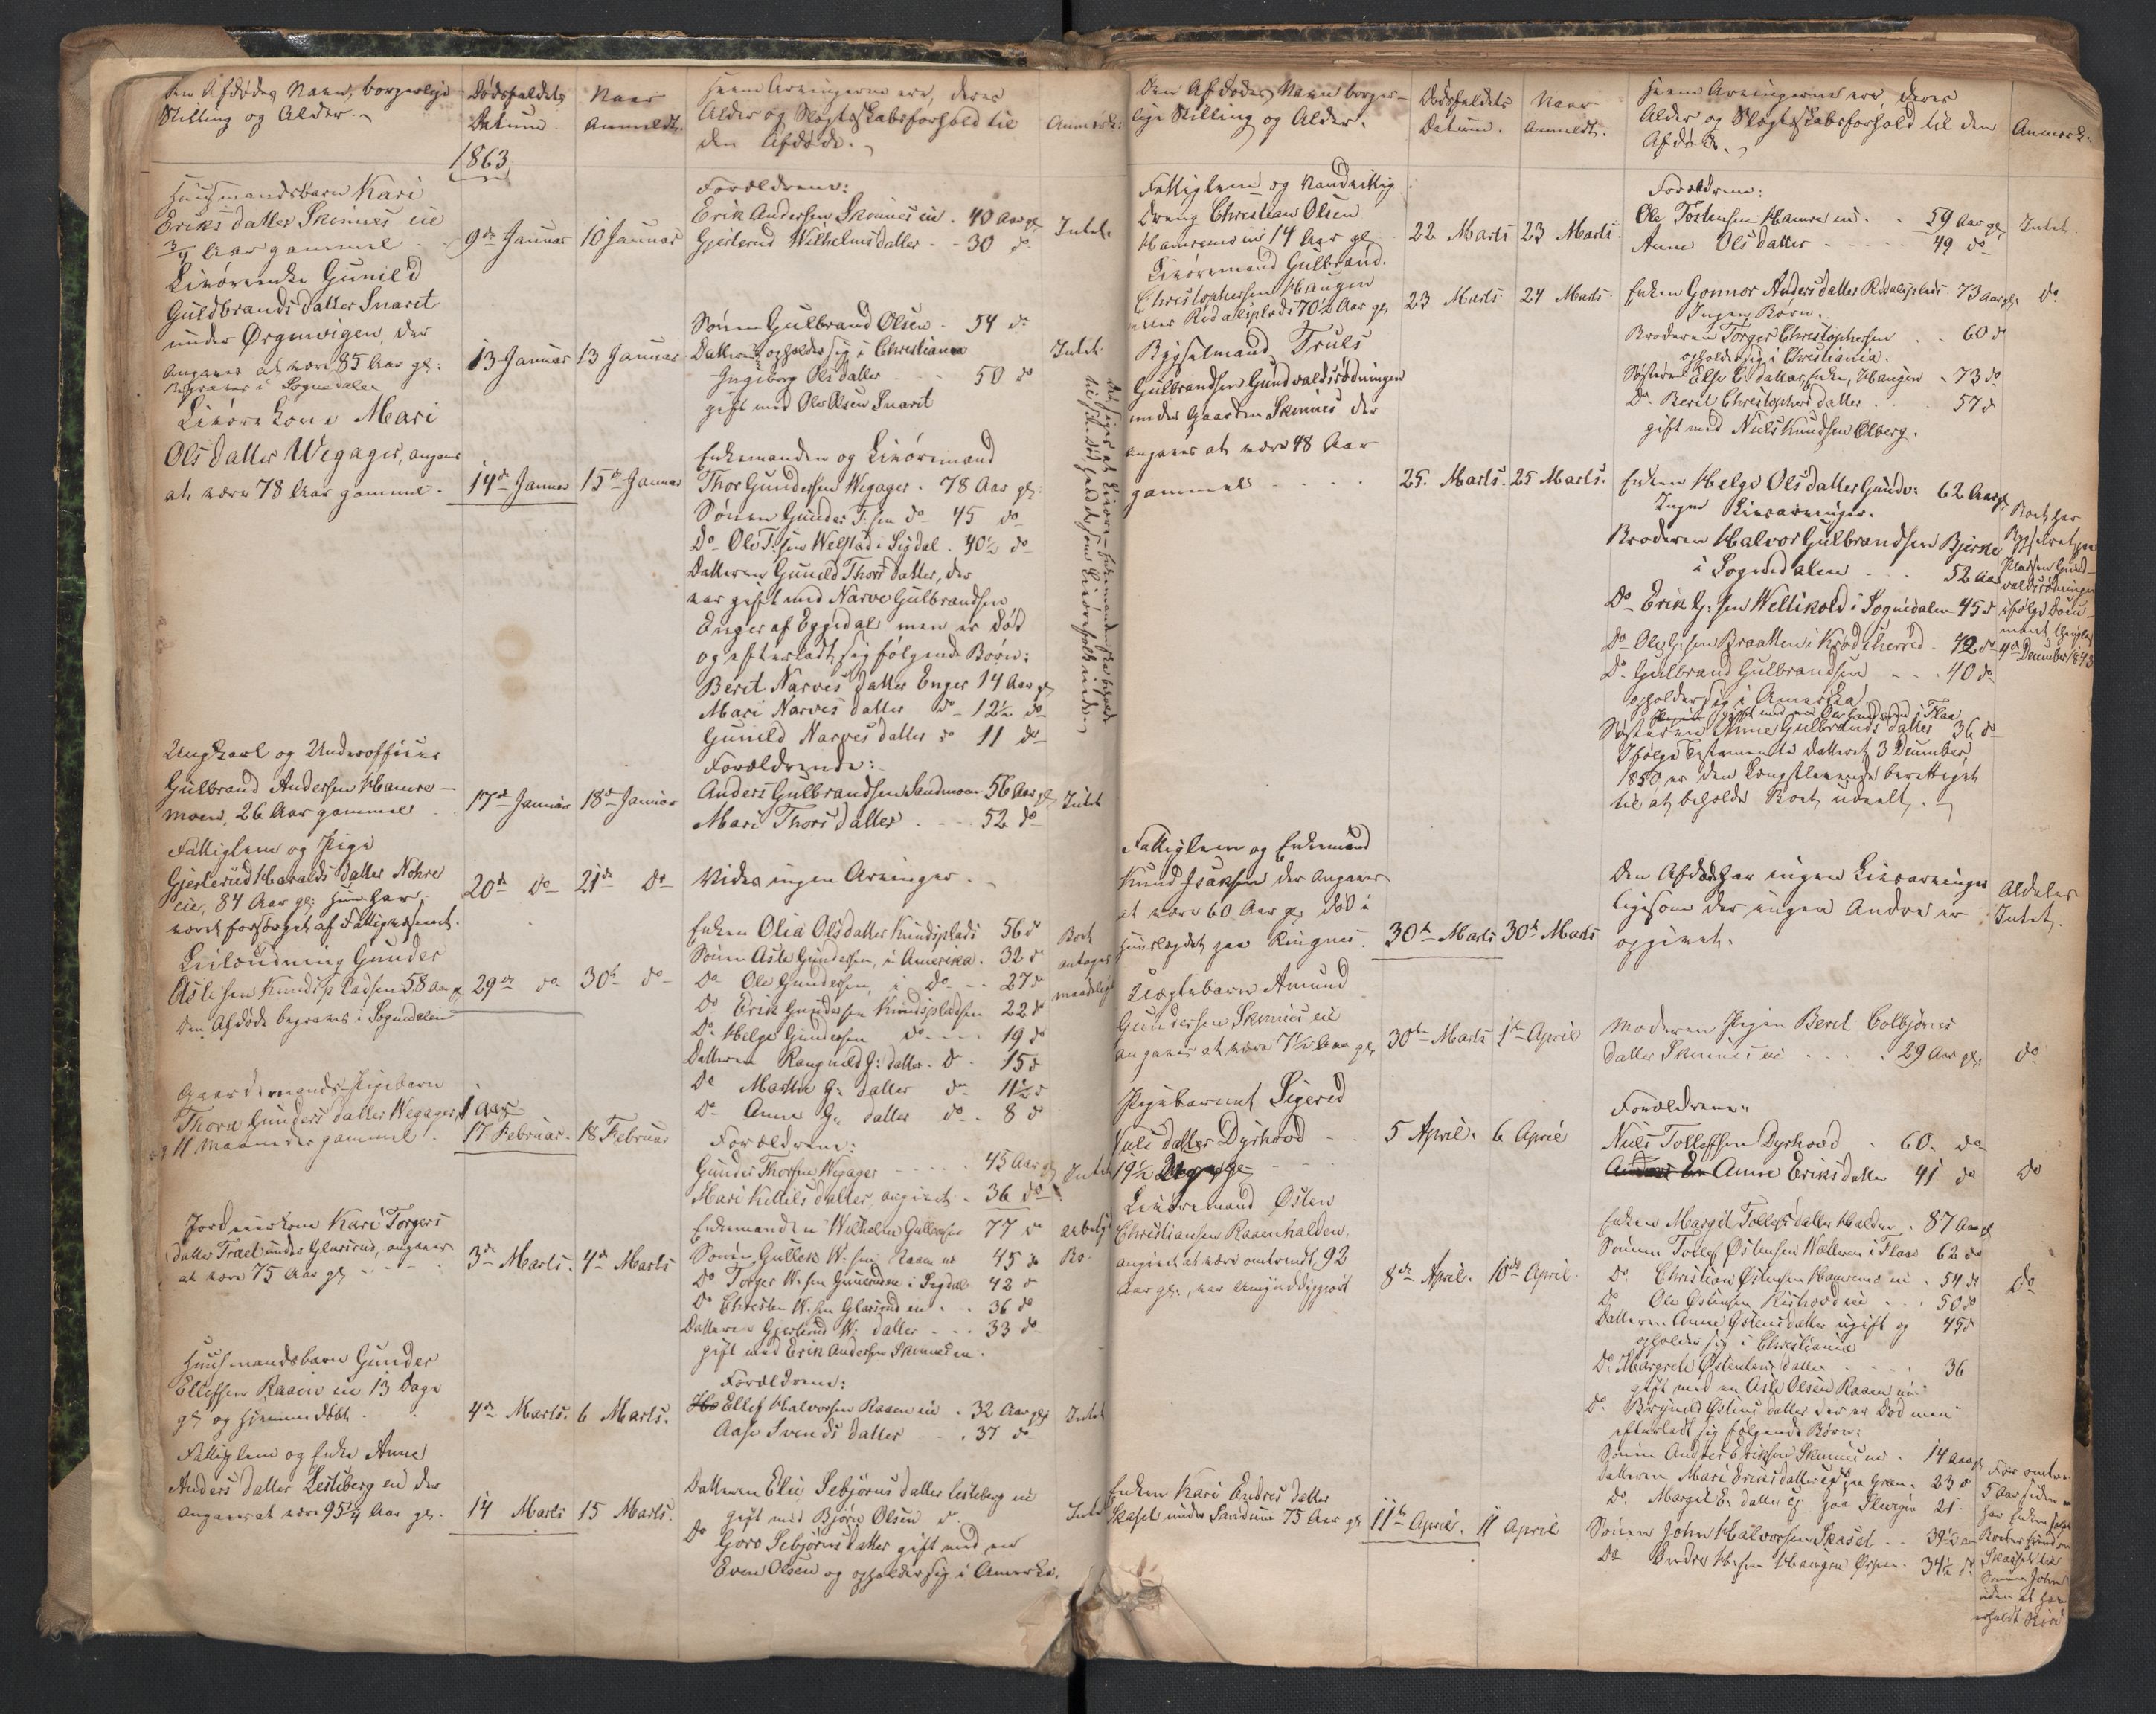 Den Afdødes Navn, borgerlige
Stilling og Alder.
Dødsfaldets
Datum.
Naar
Anmeldt.
Hvem Arvingerne ere, deres
Alder og Slægtskabsforhold til
den Afdøde.
Anmærk:
1863
Huusmandsbarn Kari
Eriksdatter Skinnes eie
3/4 Aar gammel
9de Januar
10 Januar
Forældrene:
Erik Andersen Skinnes eie . 40 Aar gl
Gjertrud Wilhelmsdatter . . 30 do
Intet
Livørenke Gunild
Guldbrandsdatter Snaret
under Ørgenvigen, der
angaves at være 85 Aar gl:
Begraves i Sognedalen
13 Januar
13 Januar
Sønen Gulbrand Olsen . 54 do
Datteren opholder sig i Christiania
Ingeborg Olsdatter . . 50 do
gift med Ole Olsen Snaret
Intet
Livørekone Mari
Olsdatter Wegager, angaves
at være 78 Aar gammel.
14de Januar
15de Januar
Enkemanden og Livøremand
Thor Gundersen Wegager . 78 Aar gl:
Sønen Gunder T:sen do 45 do
Do Ole T:sen Welstad i Sigdal . 40½ do
Datteren Gunild Thorsdatter, der
var gift med Narve Gulbrandsen
Enger af Eggedal men er død
og efterladt sig følgende Børn:
Berit Narvesdatter Enger 14 Aar gl
Mari Narvesdatter do 12½ do
Gunild Narvesdatter do 11 do
Det siges at Livøre-Enkemanden skal beholde
Ungkarl og Underofficer
Gulbrand Andersen Hamre-
moen, 26 Aar gammel
17de Januar
18de Januar
Forældrene:
Anders Gulbrandsen Sandmoen 56 Aar gl
Mari Thorsdatter . . . 52 do
Intet
Fattiglem og Pige
Gjertrud Haraldsdatter Nohre
eie, 84 Aar gl: hun har
været forsørget af Fattigvæsenet.
20de do
21de do
Vides ingen Arvinger.
Leilænding Gunder
Aslesen Knudspladsen 58 Aar gl
Den Afdøde begraves i Sognedalen
29de do
30te do
Enken Olia Olsdatter Knudsplads 56 d
Sønen Asle Gundersen, i Amerika . 32 d
Do Ole Gundersen, i do . . 27 d
Do Erik Gundersen Knudspladsen 22 d
Do Helge Gundersen do . . . 19 d
Datteren Rangnild G: datter . d 15 d
Do Marthe G: datter do 11½ d
Do Anne G: datter do . 8 d
Boet
antages
maadeligt
Gaardmands Pigebarn
Thora Gundersdatter Wegager, 1 Aar
og 11 Maaneder gammel.
17 Februar.
18 Februar
Forældrene:
Gunder Thorsen Wegager . . . . 45 Aar gl
Mari Kittilsdatter, angivet . 36 do
Intet
Jordeierkone Kari Torgers
datter Tract under Glæsrud, angaves
at være 75 Aar gl
3de Marts.
4de Marts
Enkemanden Wilhelm Gulleksen 77 d
Sønen Gullek W:sen Raaen eie 45 do
Do Torger W:sen Gunerudeie i Sigdal 42 d
Do Christen W:sen Glæsrud eie . . 36 do
Datteren Gjertrud W: datter . . . 33 do
gift med Erik Andersen Skinnes eie.
Huusmandsbarn Gunder
Ellefsen Raaen eie 13 Dage
gl og hjemmedøbt.
4de Marts.
6 Marts.
Forældrene:
Ellef Halvorsen Raaen eie . 32 Aar gl
Aase Svendsdatter . . 37 do
Intet
Fattiglem og Enke Anne
Andersdatter Lesteberg eie der
angaves at være 95¼ Aar gl.
14 Marts
15 Marts.
Datteren Elie Sebjørnsdatter Lesteberg eie
gift med Bjørn Olsen d.
Do Goro Sebjørnsdatter gift med en
Even Olsen og opholder sig i Amerika.
Intet
Den Afdødes Navn borger-
lige Stilling og Alder.
Dødsfaldets
Datum.
Naar
Anmeldt.
Hvem Arvingerne ere, deres
Alder og Slægtskabsforhold til den
Afdøde.
Anmærk:
Fattiglem og Vandvittig
Dreng Christian Olsen
Hamremoeie 14 Aar gl
22 Marts
23 Marts.
Forældrene:
Ole Tostensen Hamre eie . . 59 Aar gl
Anne Olsdatter . . . . 49 do
Intet.
Livøremand Gulbrand
Christophersen Haugen
eller Rødalsplads 70½ Aar gl
23 Marts
24 Marts.
Enken Gonnor Andersdatter Rødalsplads . 73 Aar gl.
Ingen Børn.
Broderen Torger Christophersen . . 60 d
opholder sig i Christiania.
Søsteren Else C: datter, Enke, Haugen . 73 do
Do Berit Christophersdatter . . 57 d
gift med Niels Knudsen Elberg.
do
Bygselmand Truls
Gulbrandsen Gundvaldsrødningen
under Gaarden Skinnes der
angaves at være 48 Aar
gammel
25. Marts.
25 Marts.
Enken Helge Olsdatter Gundv: 62 Aar gl
Ingen Livsarvinger.
Broderen Halvor Gulbrandsen Bjerke
i Sognedalen . . . 52 Aar
Do Erik G:sen Wellikold i Sognedalen 45 d
Do Ole G:sen Braatten i Krødsherred . 42 do
Do Gulbrand Gulbrandsen . . . 40 do
opholder sig i Amerika
Søsteren Anne Gulbrandsdatter 36 do
Ifølge Testamente dateret 3 December
1850, er den Længstlevende berettiget
til at beholde Boet udeelt.
Boet har
Bygselret paa
Pladsen Gund-
valdsrødningen
ifølge Docu-
ment thinglæst
4de December 1843
Fattiglem og Enkemand
Knud Isaksen der angaves
at være 60 Aar gl, død i
Huuslægdet paa Ringnes.
30te Marts
30te Marts
Den Afdøde har ingen Livsarvinger
ligesom der ingen Andre er
opgivet.
Aldeles
Intet.
Uægtebarn Amund
Gundersen Skinnes eie
angaves at være 7½ Aar gl,
30te Marts
1ste April
Moderen Pigen Berit Colbjørns
datter Skinnes eie . . . . 29 Aar gl.
do
Pigebarnet Sigrid
Nielsdatter Dyrhoved
19½ Uger gl
5 April.
6 April
Forældrene:
Niels Tollefsen Dyrhoved . 60. do
Anne Eriksdatter 41 do
do
Livøremand Østen
Christiansen Raaenhalden,
angivet at være omtrendt 92
Aar gl., var umyndiggjort
8de April.
10de April.
Enken Margit Tollefsdatter Halden . 87 Aar gl
Sønnen Tollef Østensen Wælleren i Flaae 62 do
Do. Christian Østensen Hamremo eie . 54 do
Do Ole Østensen Kishoved eie . . . 50 do
Datteren Anne Østensdatter ugift og 45 d
opholder sig i Christiania
Do Margrete Østensdatter . . . . 36
gift med en Asle Olsen Raaen eie
Do. Brynild Østensdatter der er Død men
efterladt sig følgende Børn:
Sønen Anders Eriksen Skinnes eie . 14 Aar gl
Datteren Mari Eriksdatter paa Gren . 23 d
Do. Margit E: datter paa 21.
do
Enken Kari Endresdatter
Skasel under Sandum 75 Aar gl
11te April.
11 April
Sønen John Halvorsen Skasel . . 39½ Aar
Do Endre H:sen Haugen Ørpen . 34½ do
For omtrent
5 Aar siden
har Enken solgt
Skassel til
Sønnen John
uden at have
erholdt Skiøde